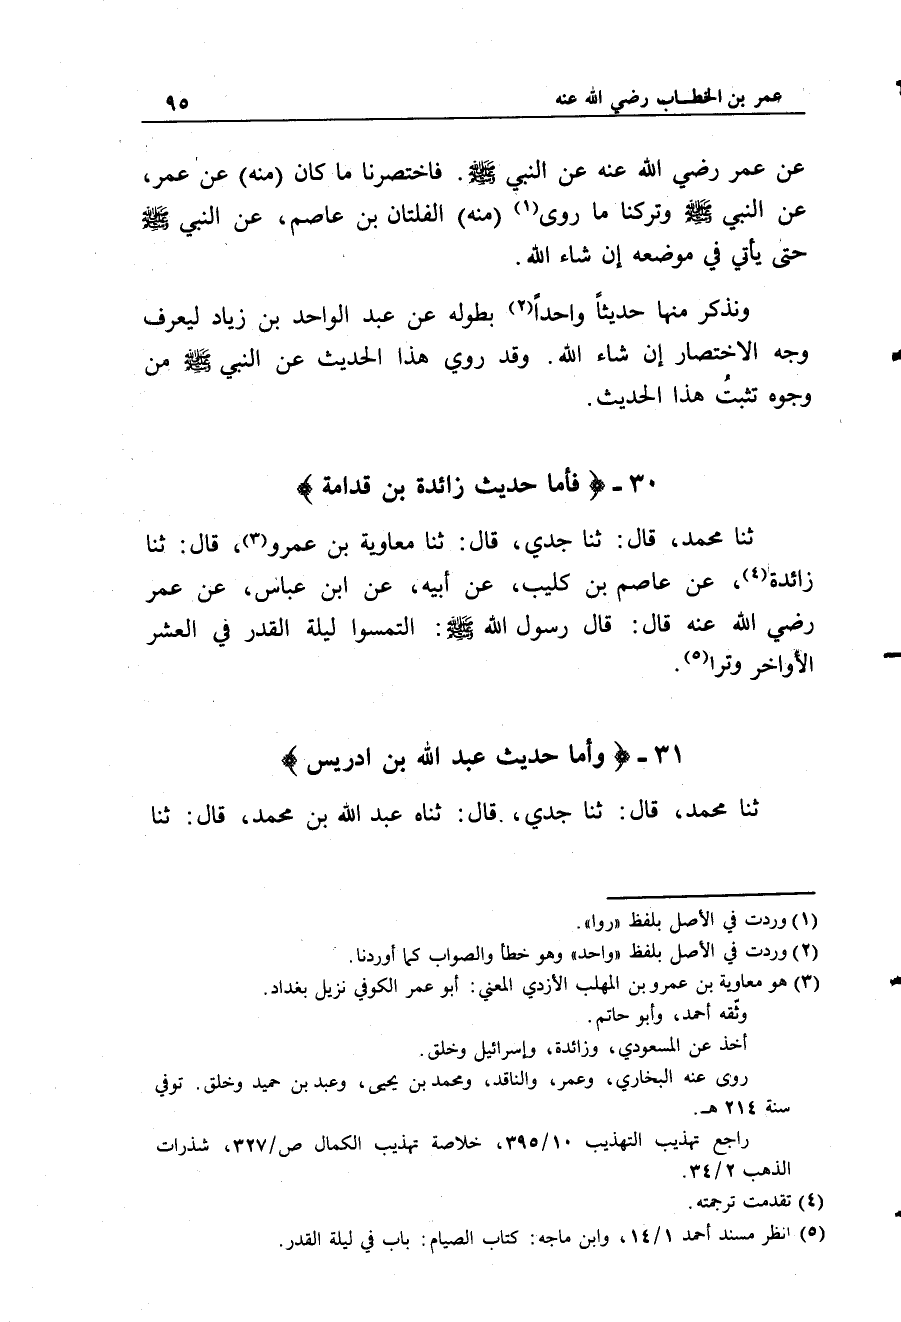 عمر بن الخطـاب رضي الله عنه ٩٥
عن عمر رضي الله عنه عن النبي ﷺ. فاختصرنا ما كان (منه) عن عمر،
عن النبي ﷺ وتركنا ما روى(١) (منه) الفلتان بن عاصم، عن النبي ﷺ
حتى يأتي في موضعه إن شاء الله.
ونذكر منها حديثاً واحداً(٢) بطوله عن عبد الواحد بن زياد ليعرف
وجه الاختصار إن شاء الله. وقد روي هذا الحديث عن النبي ﷺ من
وجوه تثبتُ هذا الحديث.
٣٠ ـ ﴿ فأما حديث زائدة بن قدامة ﴾
ثنا محمد، قال: ثنا جدي، قال: ثنا معاوية بن عمرو(٣)، قال: ثنا
زائدة(٤)، عن عاصم بن كليب، عن أبيه، عن ابن عباس، عن عمر
رضي الله عنه قال: قال رسول الله ﷺ: التمسوا ليلة القدر في العشر
الأواخر وترا(٥).
٣١ ـ ﴿ وأما حديث عبد الله بن ادريس ﴾
ثنا محمد، قال: ثنا جدي، قال: ثناه عبد الله بن محمد، قال: ثنا
(١) وردت في الأصل بلفظ «روا».
(٢) وردت في الأصل بلفظ «واحد» وهو خطأ والصواب كما أوردنا.
(٣) هو معاوية بن عمرو بن المهلب الأزدي المعني: أبو عمر الكوفي نزيل بغداد.
وثّقه أحمد، وأبو حاتم.
أخذ عن المسعودي، وزائدة، وإسرائيل وخلق.
روى عنه البخاري، وعمر، والناقد، ومحمد بن يحيى، وعبد بن حميد وخلق. توفي
سنة ٢١٤ هـ.
راجع تهذيب التهذيب ٣٩٥/١٠، خلاصة تهذيب الكمال ص/٣٢٧، شذرات
الذهب ٣٤/٢.
(٤) تقدمت ترجمته.
(٥) انظر مسند أحمد ١٤/١، وابن ماجه: كتاب الصيام: باب في ليلة القدر.